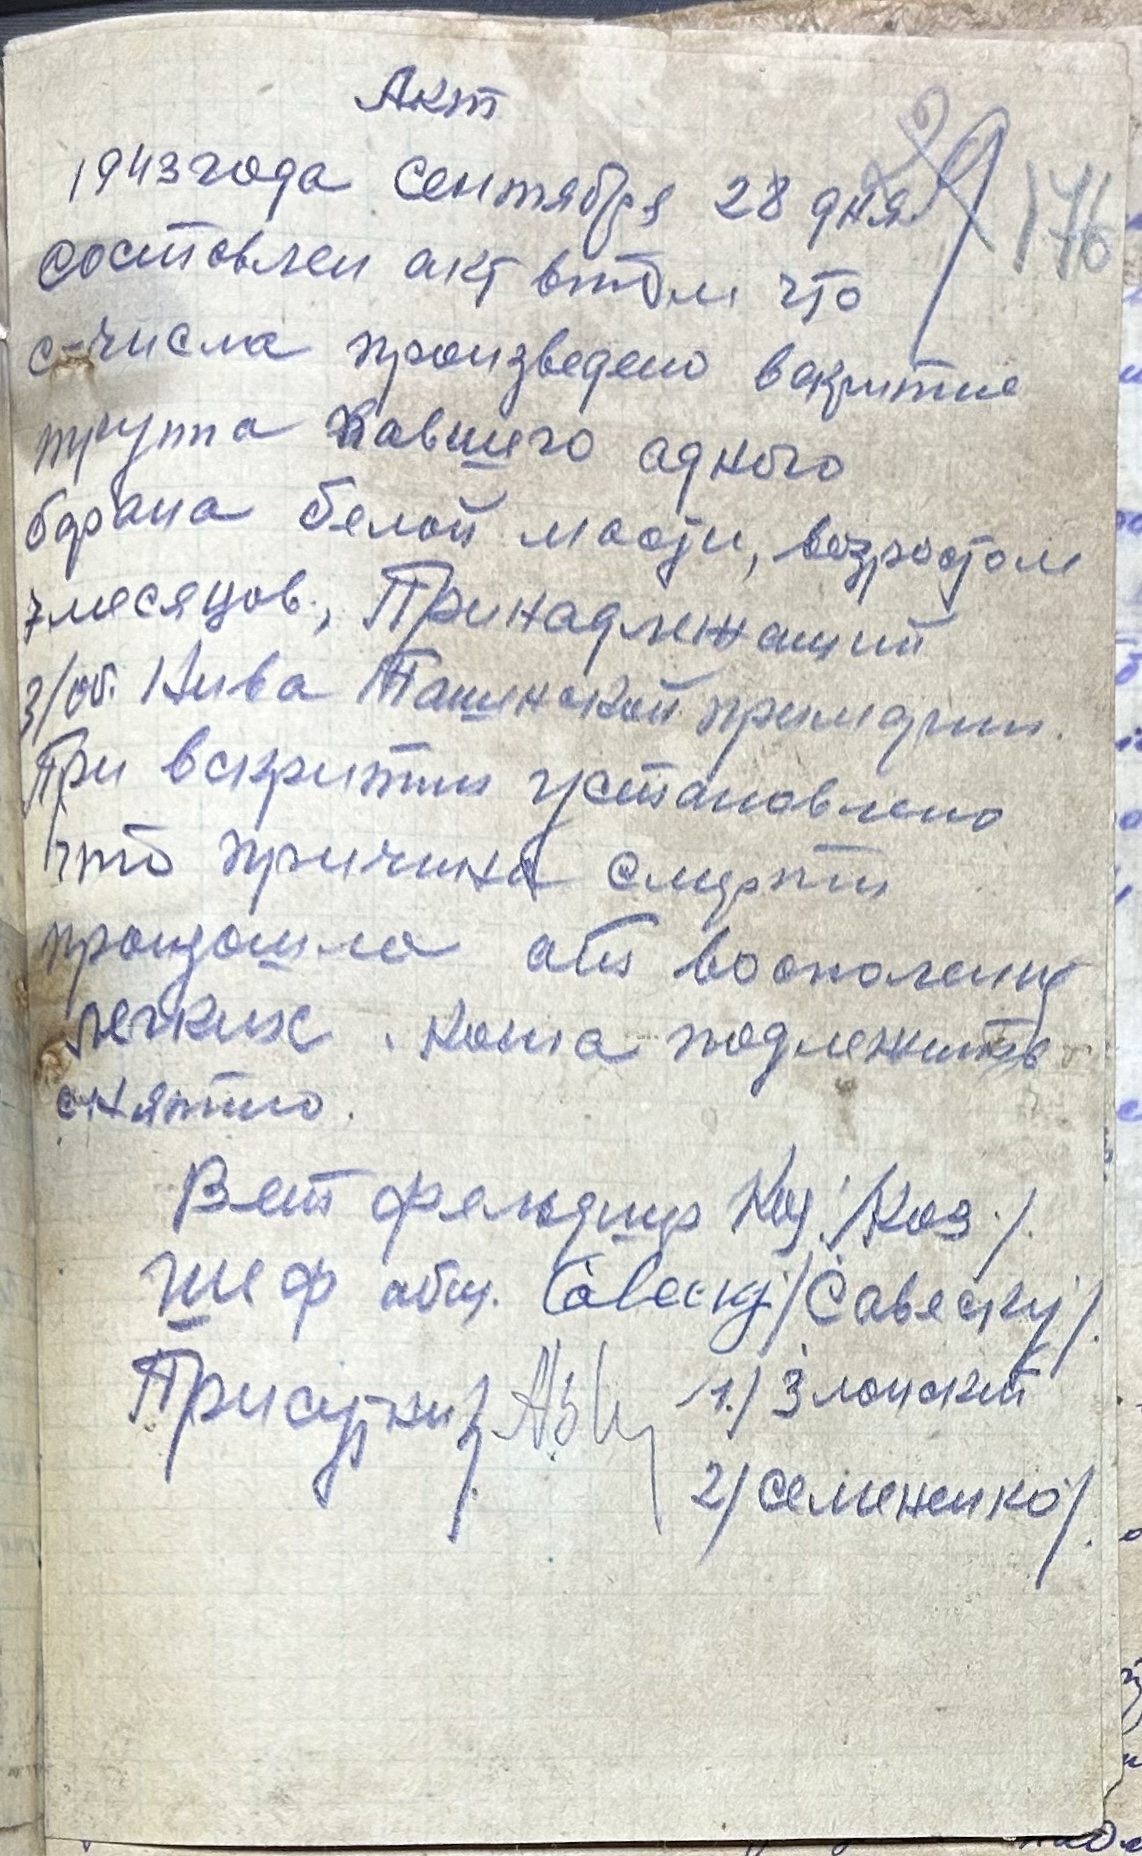 Акт
176
1943 года сентября 28 дня
состовлен акт втом что
с-числа произведено вскрытие
трупа павшего адного
барана белой масти, возростом
7 месяцов, Принадлежащий
з/об. Нива Ташинской примарии.
При вскритии установлено
что причина смерти
произошла аты восполению
легких. Кожа подлежить
снятию.
Вет фельдшер Коз /Коз./.
Шеф общ. Савеску /Савеску/.
Присутни 1./ Злоиский
2/ Семененко/.